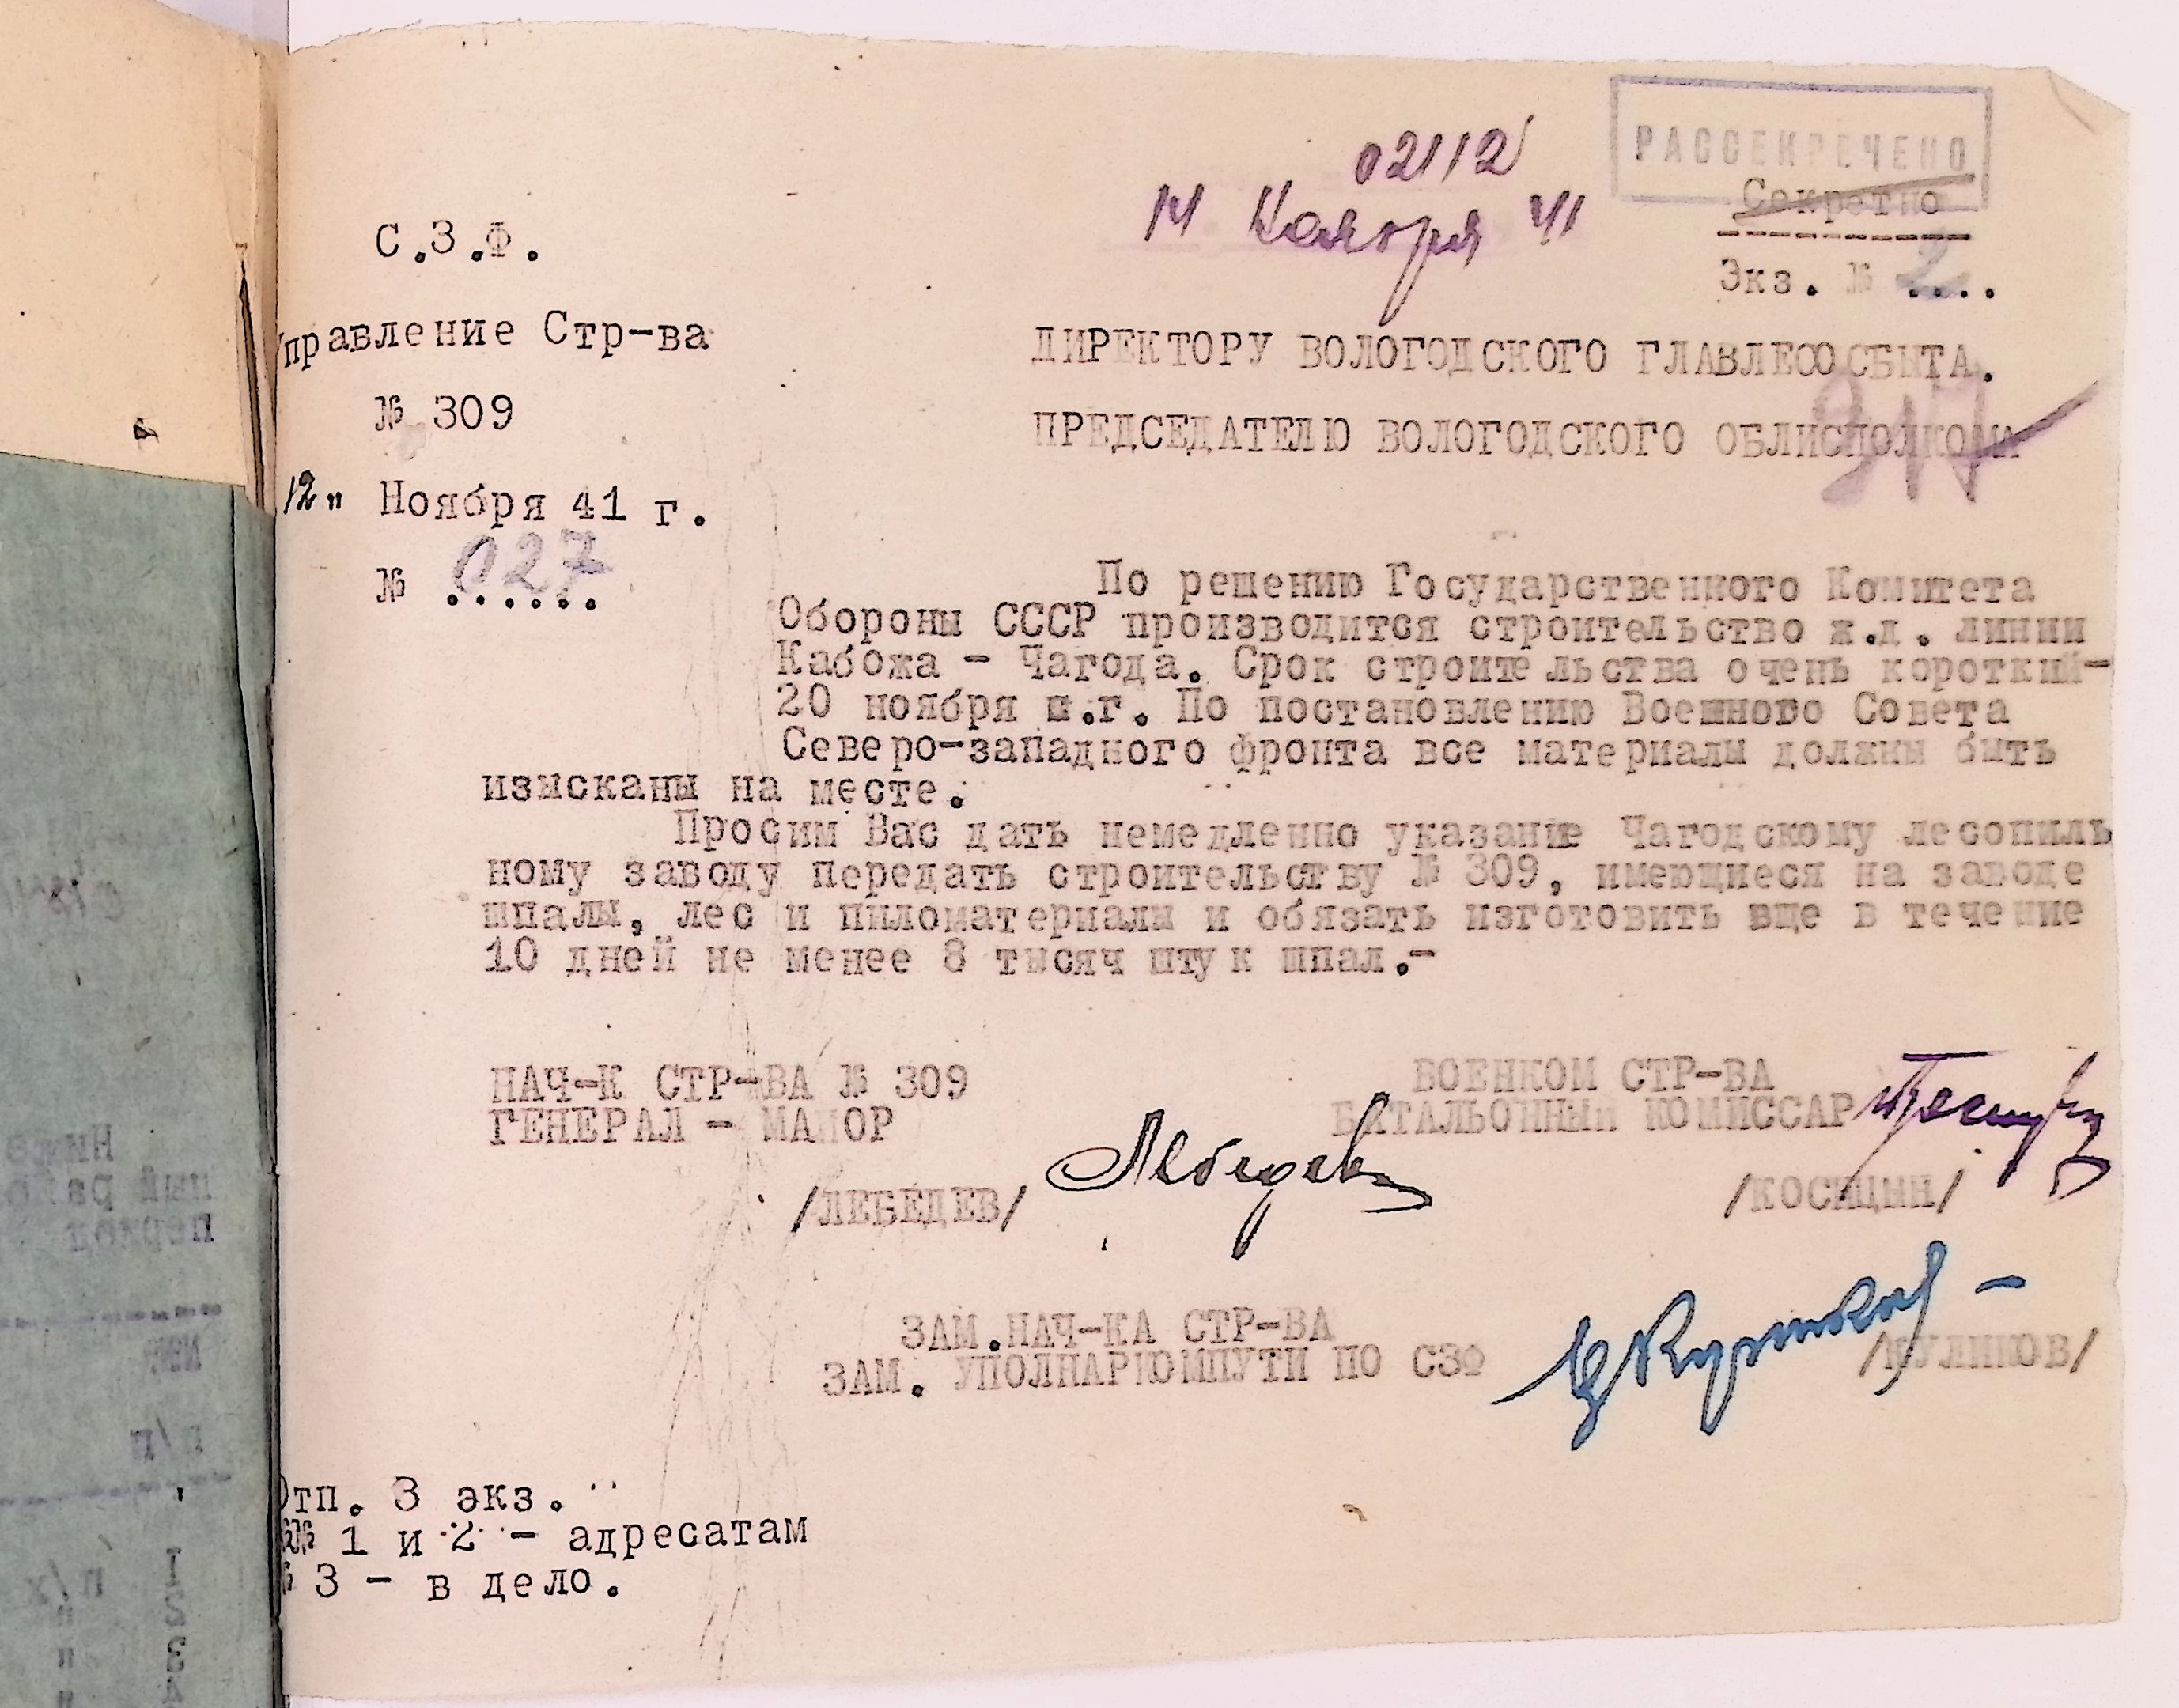 РАССЕКРЕЧЕНО
Секретно
Экз. № 2...
02112
14 Ноября 41
С.З.Ф.
Управление Стр-ва
№ 309
12" Ноября 41 г.
№ 027
ДИРЕКТОРУ ВОЛОГОДСКОГО ГЛАВЛЕСОСБЫТА.
ПРЕДСЕДАТЕЛЮ ВОЛОГОДСКОГО ОБЛИСПОЛКОМА
По решению Государственного Комитета
Обороны СССР производится строительство ж.д. линии
Кабожа - Чагода. Срок строительства очень короткий-
20 ноября с.г. По постановлению Военного Совета
Северо-западного фронта все материалы должны быть
изысканы на месте.
Просим Вас дать немедленно указание Чагодскому лесопиль
ному заводу передать строительству № 309, имеющиеся на заводе
шпалы, лес и пиломатериалы и обязать изготовить еще в течение
10 дней не менее 8 тысяч штук шпал.-
НАЧ-К СТР-ВА № 309
ГЕНЕРАЛ - МАЙОР
/ЛЕБЕДЕВ/
Лебедев
ВОЕНКОМ СТР-ВА
БАТАЛЬОННЫЙ КОМИССАР
/КОСИЦЫН/
ЗАМ.НАЧ-КА СТР-ВА
ЗАМ. УПОЛНАРКОМПУТИ ПО СЗФ
/КУЛИКОВ/
Отп. 3 экз.
№№ 1 и 2 - адресатам
№ 3 - в дело.